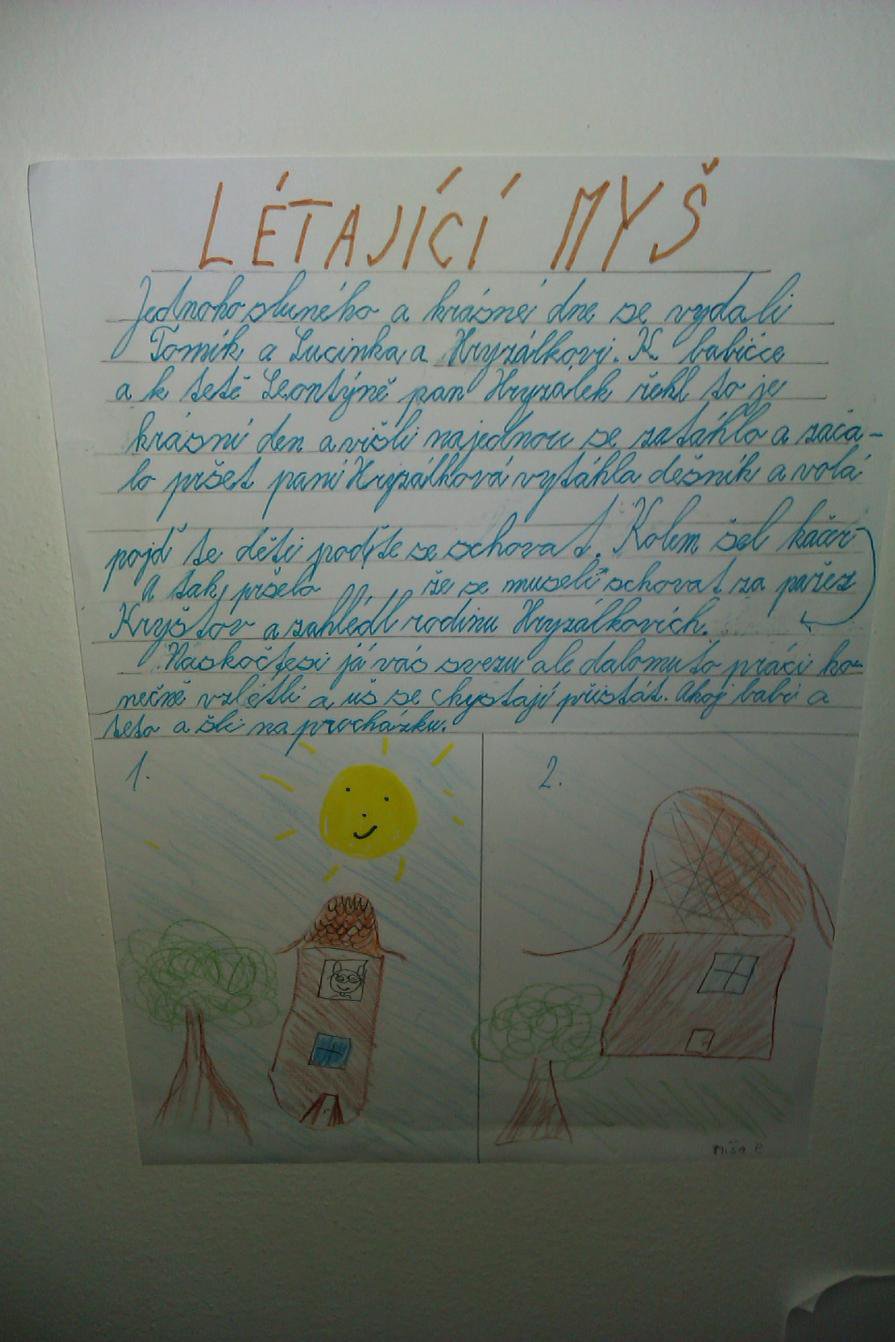 LÉTAJÍCÍ MYŠ
Jednoho sluného a krásnéi dne se vydali
Tomík a Lucinka a Hryzálkovi. K babičce
a k tetě Leontýně pan Hryzálek řekl to je
krásní den a višli najednou se zatáhlo a zača-
lo pršet paní Hryzálková vytáhla dešník a volá
pojď te děti podíte se schovat. Kolem šel kačer
A tak pršelo že se museli schovat za pařez
Kryštov a zahlédl rodinu Hryzálkovích.
Naskočtesi já vás svezu ale dalomuto práci ko-
nečně vzlétli a uš se chystají přistát. Ahoj babi a
teto a šli na procházku.
1.
2.
Míša P